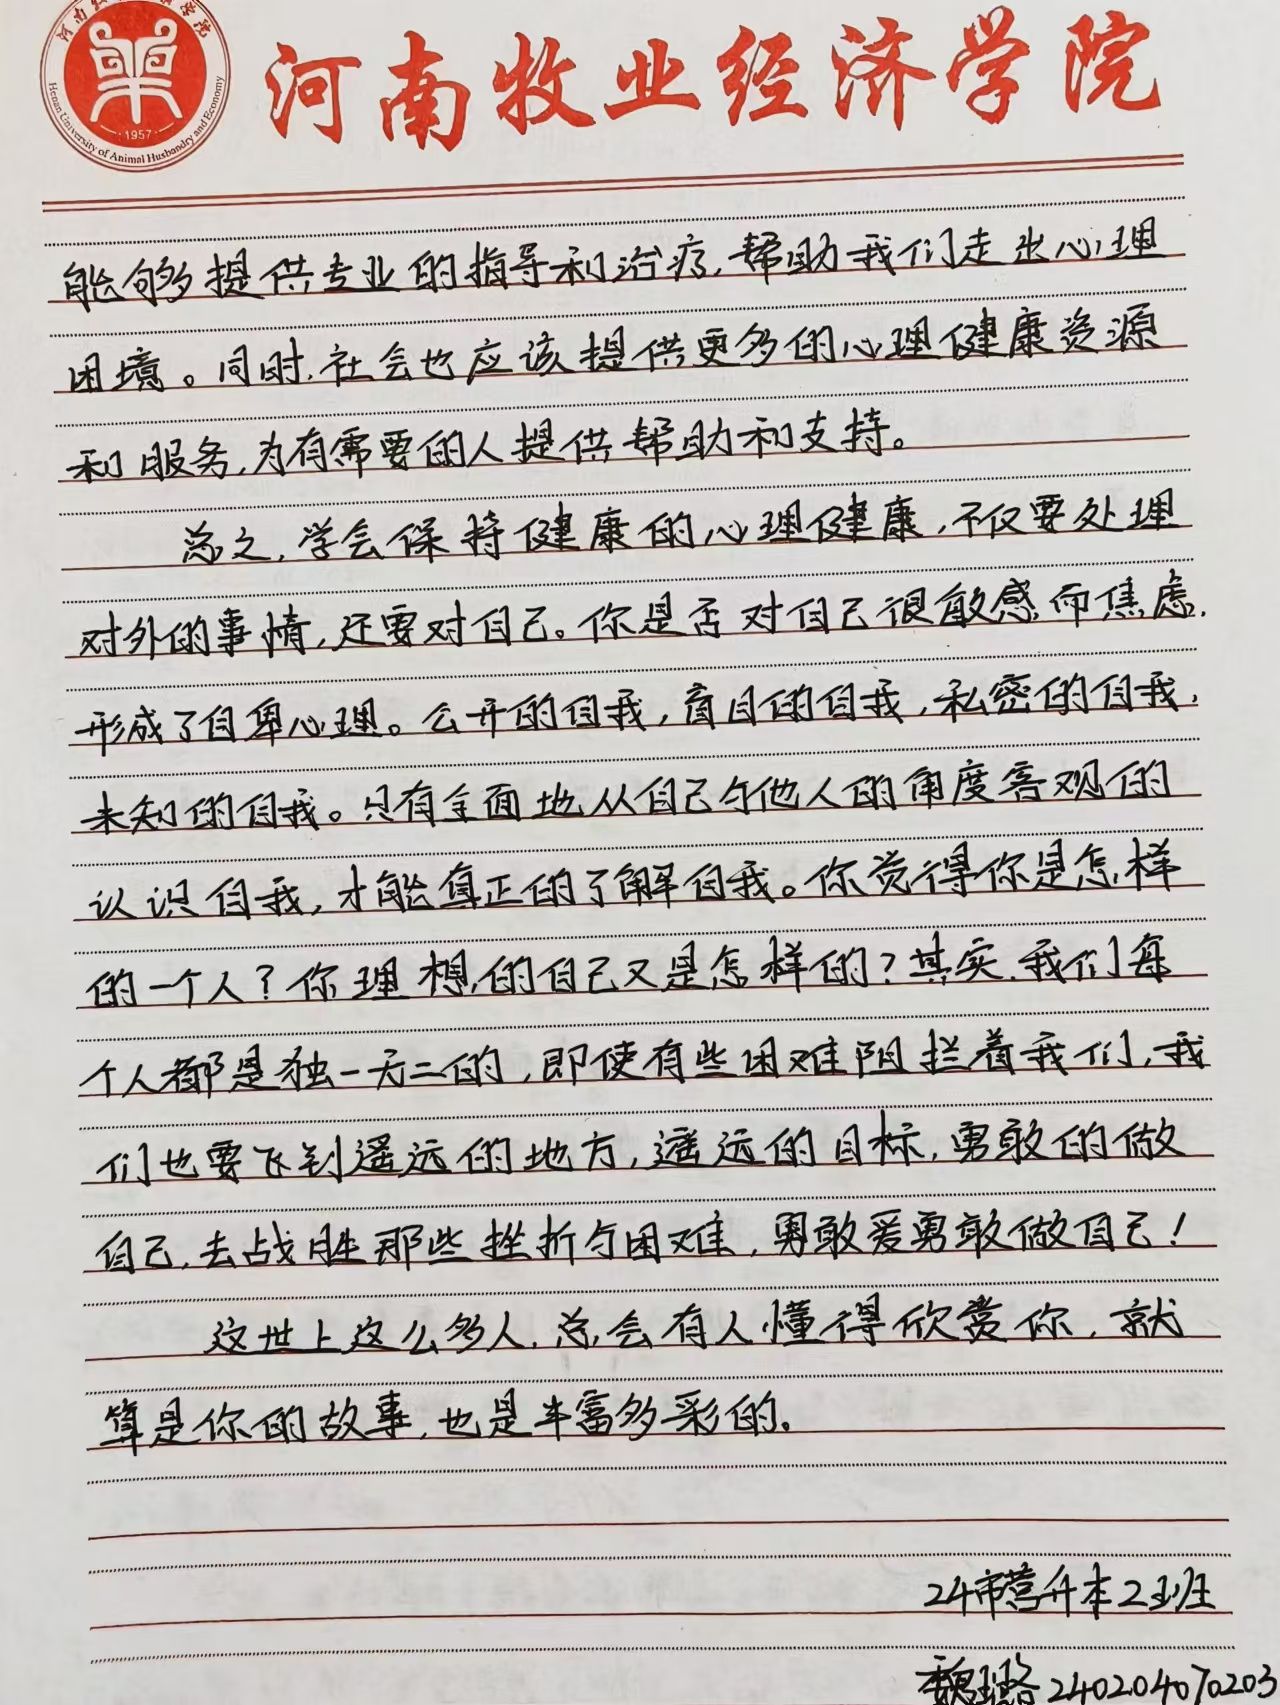 河南牧业经济学院
Henan University of Animal Husbandry and Economy
1957
能够提供专业的指导和治疗,帮助我们走出心理
困境。同时,社会也应该提供更多的心理健康资源
和服务,为有需要的人提供帮助和支持。
总之,学会保持健康的心理健康,不仅要处理
对外的事情,还要对自己。你是否对自己很敏感而焦虑,
形成了自卑心理。公开的自我,盲目的自我,私密的自我,
未知的自我。只有全面地从自己与他人的角度客观的
认识自我,才能真正的了解自我。你觉得你是怎样
的一个人?你理想的自己又是怎样的?其实,我们每
个人都是独一无二的,即使有些困难阻拦着我们,我
们也要飞到遥远的地方,遥远的目标,勇敢的做
自己,去战胜那些挫折与困难,勇敢爱勇敢做自己!
这世上这么多人,总会有人懂得欣赏你,就
算是你的故事,也是丰富多彩的。
24市营升本2班
魏璐 240204070203